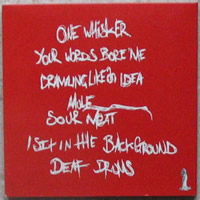 ONE WHISKER
YOUR WORDS BORE ME
CRAWLING LIKE IDEA
MULE
SOUR MEAT
I SIT IN THE BACKGROUND
DEAF DRUMS